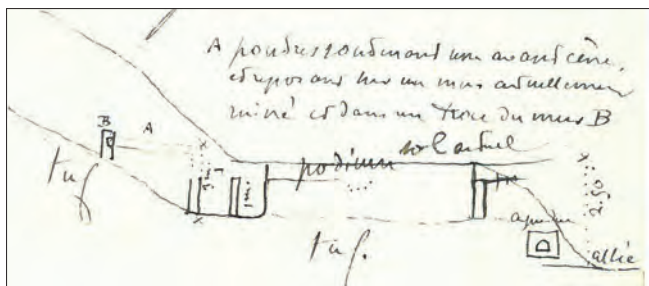 A poudres soutenant une avant cène,
et reposant sur un mur actuellement
ruiné et dans un trou du mur B
sol actuel
podium
B
A
tuf
tuf.
2.50
allée